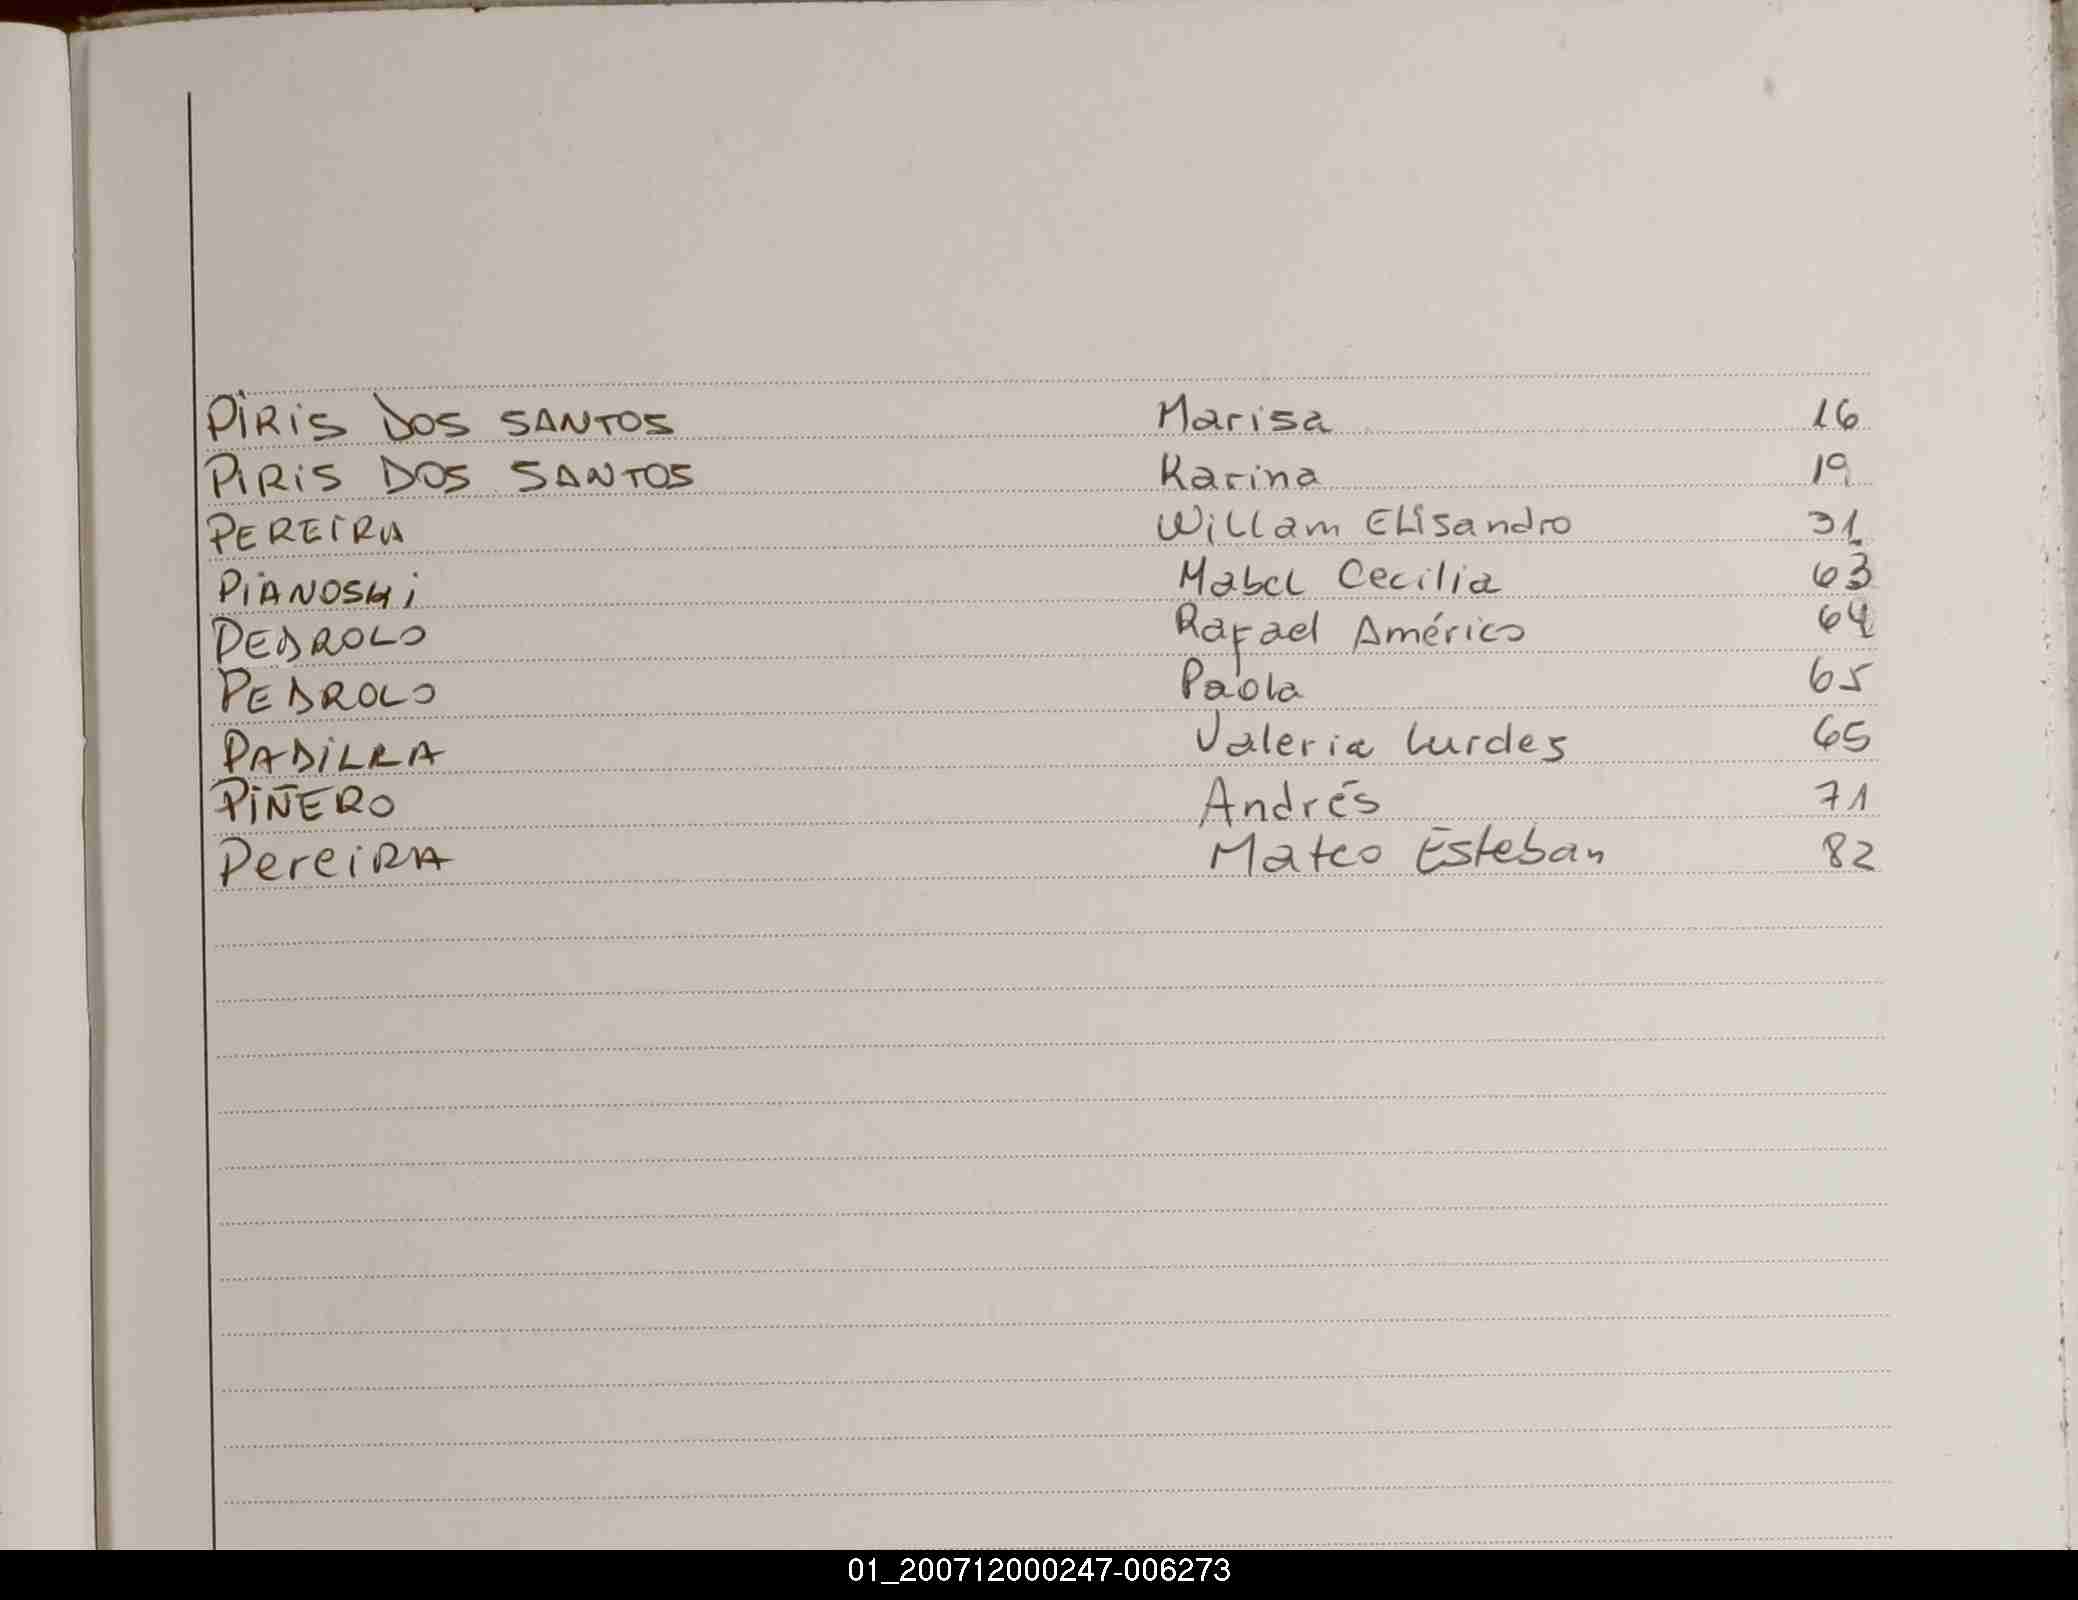 PIRIS DOS SANTOS Marisa 16
PIRIS DOS SANTOS Karina 19
PEREIRA Willam Elisandro 31
PIANOSKI Mabel Cecilia 63
PEDROLO Rafael Américo 64
PEDROLO Paola 65
PADILRA Valeria Lurdes 65
PIÑERO Andrés 71
PereiRA Mateo Esteban 82
01_200712000247-006273